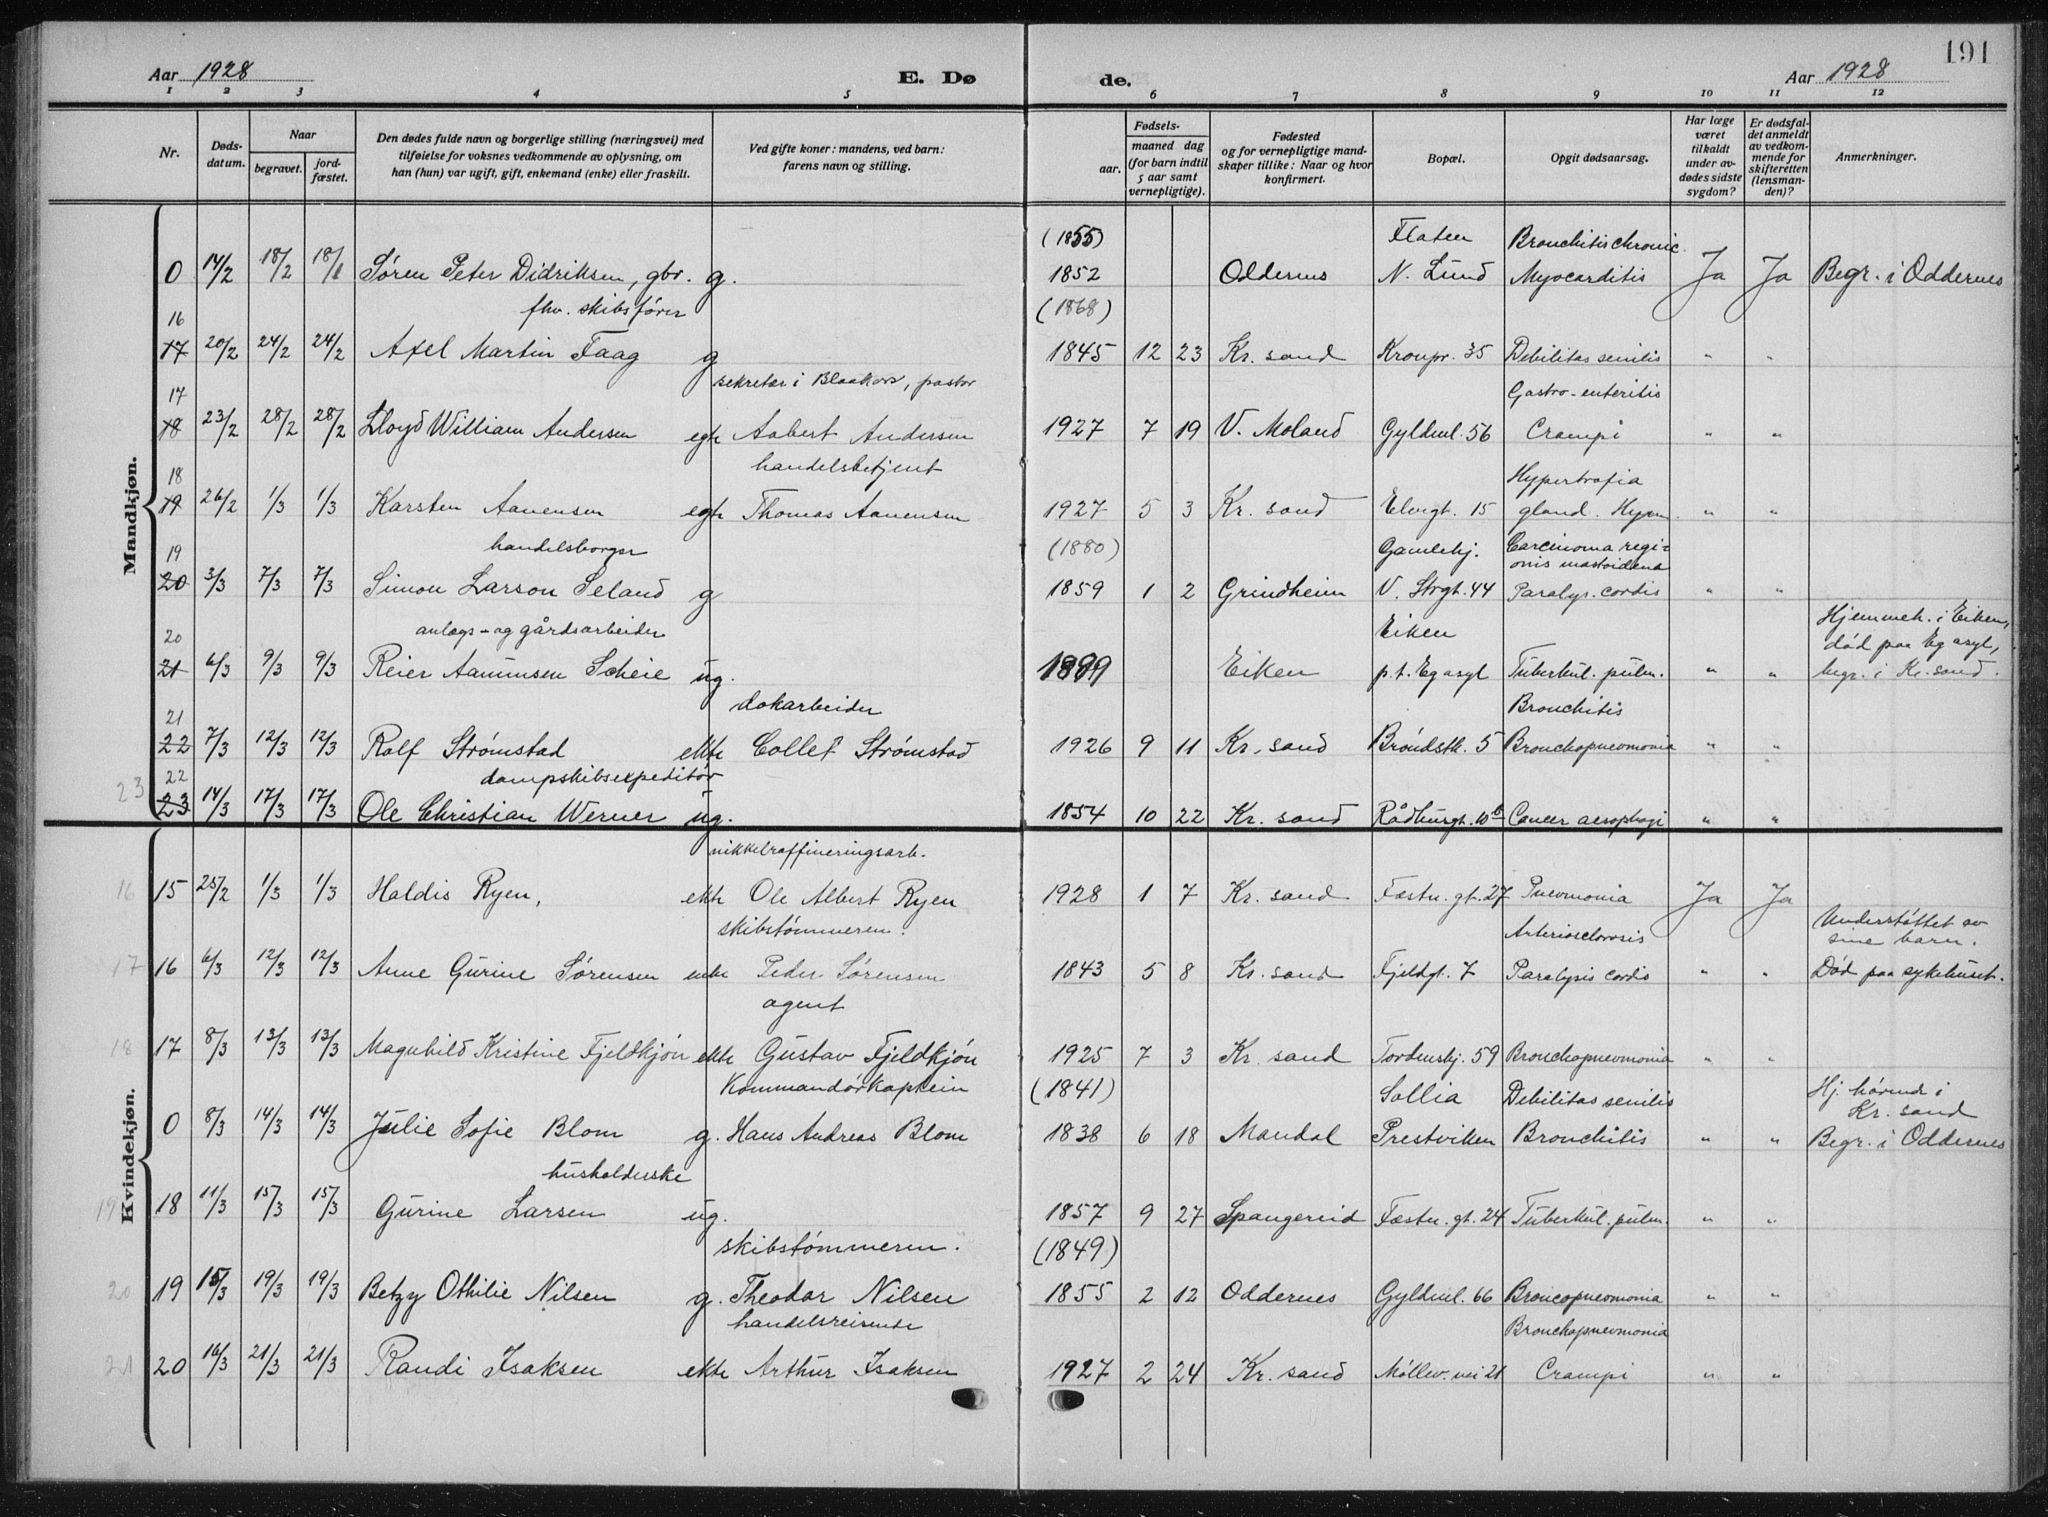 191
Aar 1928 E. Dø de. Aar 1928
1 2 3 4 5 6 7 8 9 10 11 12
Nr. Døds-datum. Naar begravet. jord-fæstet. Den dødes fulde navn og borgerlige stilling (næringsvei) med tilføielse for voksnes vedkommende av oplysning, om han (hun) var ugift, gift, enkemand (enke) eller fraskilt. Ved gifte koner: mandens, ved barn: farens navn og stilling. Fødsels- aar. maaned dag (for barn indtil 5 aar samt vernepligtige). Fødested og for vernepligtige mandskaper tillike: Naar og hvor konfirmert. Bopæl. Opgit dødsaarsag. Har læge været tilkaldt under avdødes sidste sygdom? Er dødsfaldet anmeldt av vedkommende for skifteretten (lensmanden)? Anmerkninger.
Mandkjøn.
(1855) Flaten Bronchitis chronic.
0 14/2 18/2 18/2 Søren Peter Didriksen, gbr. g. 1852 Oddernes N. Lund Myocarditis Ja Ja Begr. i Oddernes
16 fhv. skibsfører (1868)
17 20/2 24/2 24/2 Axel Martin Faag g 1845 12 23 Kr. sand Kronpr. 35 Debilitas senilis " "
17 sekretær i Blaakors, pastor Gastro-enteritis
18 23/2 28/2 28/2 Lloyd William Andersen egte Aabert Andersen 1927 7 19 V. Moland Gyldenl. 56 Crampi " "
18 handelsbetjent Hypertrofia
19 26/2 1/3 1/3 Karsten Aanensen egte Thomas Aanensen 1927 5 3 Kr. sand Elvegt. 15 gland. Hym. " "
19 handelsborger (1880) Gamlehj. Carcinoma regi-onis mastoidena
20 3/3 7/3 7/3 Simon Larson Seland g 1859 1 2 Grindheim V. Strgt. 44 Paralys. cordis " "
20 anlægs- og gårdsarbeider Eiken Hjemmeh. i Eiken, død paa Eg asyl,
21 6/3 9/3 9/3 Reier Aamunsen Scheie ug. 1899 Eiken p.t. Eg asyl Tuberkul. pulm. " " begr. i Kr. sand.
21 dokarbeider Bronchitis
22 7/3 12/3 12/3 Rolf Strømstad ekte Collet Strømstad 1926 9 11 Kr. sand Bróndstk. 5 Bronchopneomonia " "
22 dampskibsexpeditór
23 23 14/3 17/3 17/3 Ole Christian Werner ug. 1854 10 22 Kr. sand Rådhusgt. 10 b Cancer aesophagi " "
Kvindekjøn.
nikkelraffineringsarb.
16 15 25/2 1/3 1/3 Haldis Ryen, ekte Ole Albert Ryen 1928 1 7 Kr. sand Fæstn. gt. 27 Pneomonia Ja Ja
skibstømmerm. Arteriosclerosis Understøttet av sine barn.
17 16 6/3 12/3 12/3 Anne Gurine Sørensen enke Peder Sørensen 1843 5 8 Kr. sand Fjeldgt. 7 Paralysis cordis " " Død paa sykehuset.
agent
18 17 8/3 13/3 13/3 Magnhild Kristine Fjeldkjón ekte Gustav Fjeldkjón 1925 7 3 Kr. sand Tordenskj. 59 Bronchopneomonia " "
Kommandórkaptein (1841) Sollia Debilitas senilis Hj. hórende i Kr. sand
0 8/3 14/3 14/3 Julie Sofie Blom g. Hans Andreas Blom 1838 6 18 Mandal Prestviken Bronchitis " " Begr. i Oddernes
husholderske
19 18 11/3 15/3 15/3 Gurine Larsen ug. 1857 9 27 Spangereid Fæstn. gt. 24 Tuberkul. pulm. " "
skibstómmerm. (1849)
20 19 15/3 19/3 19/3 Betzy Othilie Nilsen g. Theodor Nilsen 1855 2 12 Oddernes Gyldenl. 66 Broncopneomonia " "
handelsreisende Bronchopneomonia
21 20 16/3 21/3 21/3 Randi Isaksen ekte Arthur Isaksen 1927 2 24 Kr. sand Móllev. vei 21 Crampi " "